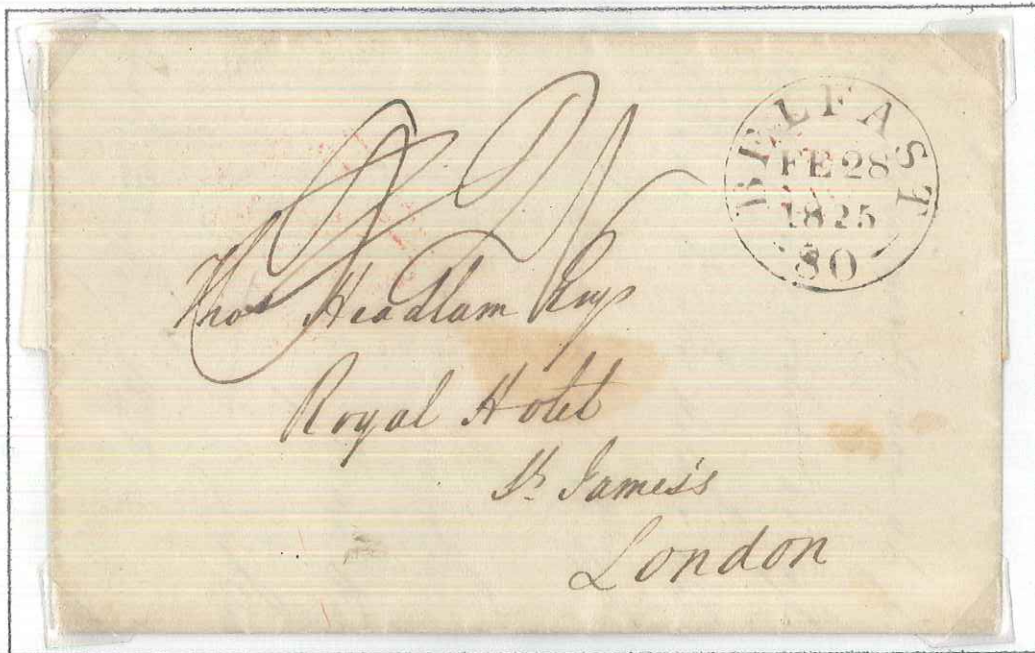 BELFAST
FE 28
1825
80
Thos Headlam Esqr
Royal Hotel
St. James's
London